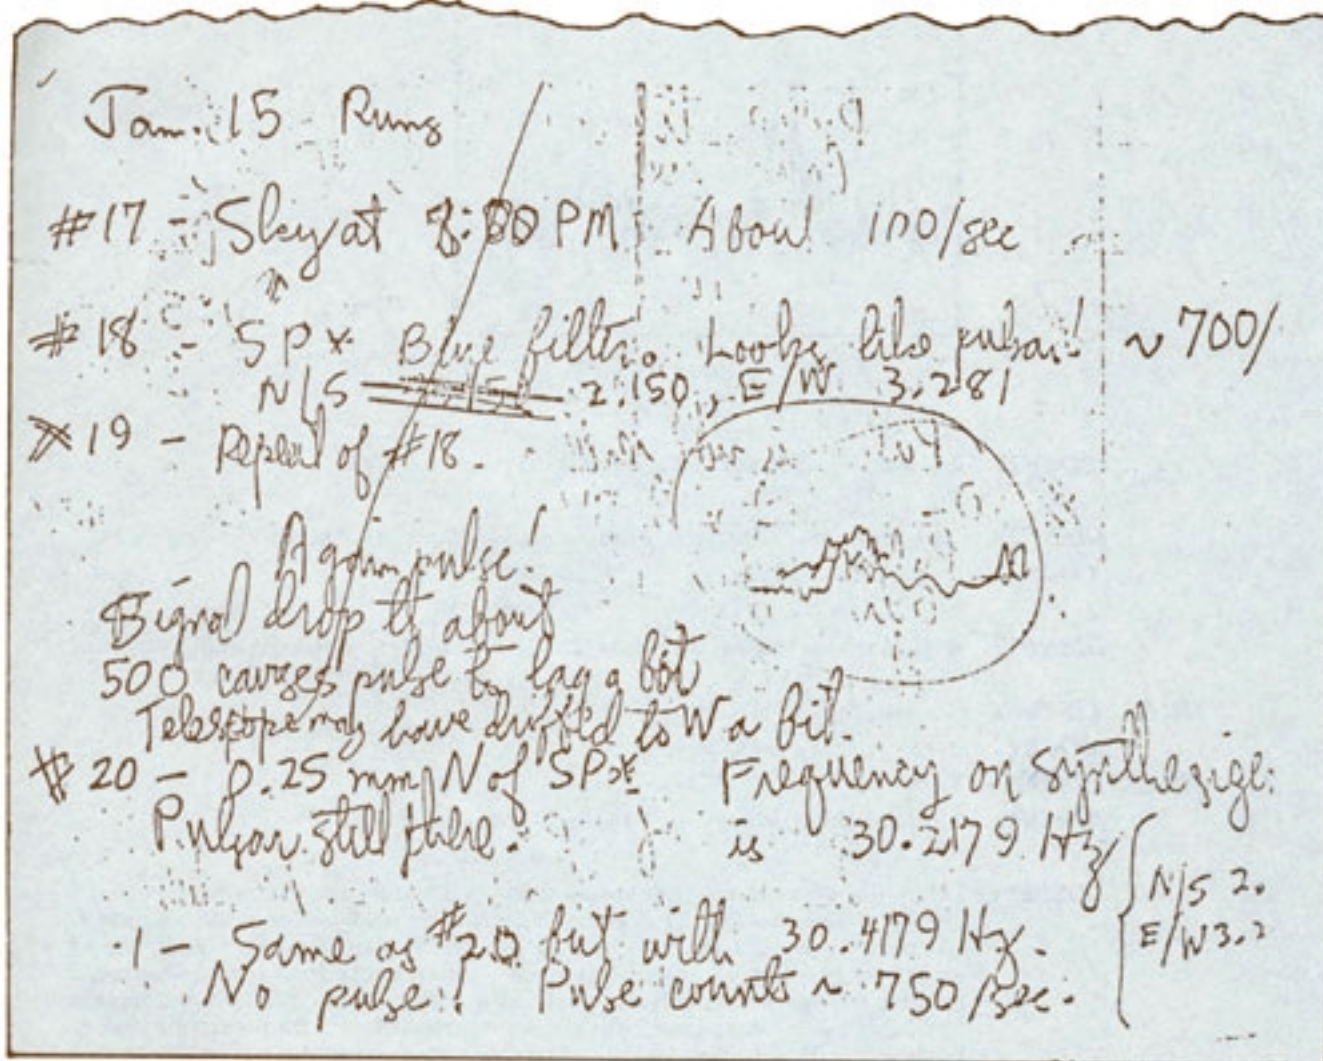 Jan. 15 Runs
#17 - Sky at 8:00 PM About 100/sec
#18 - SP* Blue filter. Looks like pulsar! ~ 700/
N/S 2.150, E/W 3.281
#19 - Repeat of #18.
Again pulse!
Signal drop to about
500 causes pulse to lag a bit
Telescope may have drifted to W a bit.
#20 - 0.25 mm N of SP* Frequency on synthesize.
Pulsar still there. is 30.2179 Hz
N/S 2.
E/W 3.2
1 - Same as #20 but with 30.4179 Hz.
No pulse! Pulse counts ~ 750/sec.